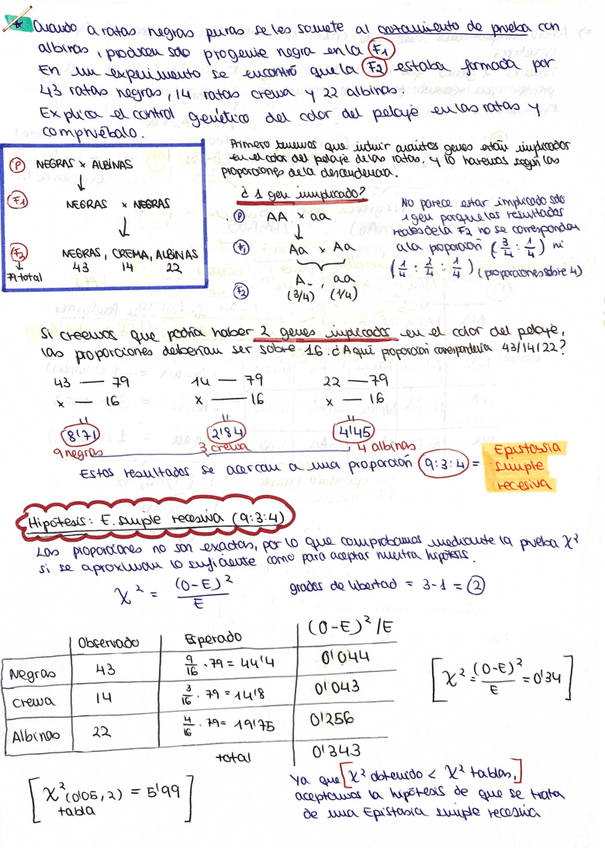 * Cuando a ratas negras puras se les somete al cruzamiento de prueba con
albinas, producen solo progenie negra en la F1
En un experimento se encontró que la F2 estaba formada por
43 ratas negras, 14 ratas crema y 22 albinas.
Explica el control genético del color del pelaje en las ratas y
compruébalo.
P NEGRAS x ALBINAS
F1 NEGRAS x NEGRAS
F2 NEGRAS, CREMA, ALBINAS
79 total 43 14 22
Primero tenemos que inducir cuántos genes están implicados
en el color del pelaje de las ratas, y lo haremos según las
proporciones de la descendencia.
¿1 gen implicado?
P AA x aa
F1 Aa x Aa
F2 A_, aa
(3/4) (1/4)
No parece estar implicado solo
1 gen porque los resultados
reales de la F2 no se corresponden
a la proporción (3/4 : 1/4) ni
(1/4 : 2/4 : 1/4) (proporciones sobre 4)
Si creemos que podría haber 2 genes implicados en el color del pelaje,
las proporciones deberían ser sobre 16. ¿A qué proporción correspondería 43/14/22?
43 — 79 14 — 79 22 — 79
x — 16 x — 16 x — 16
8'71 2'84 4'45
9 negras 3 crema 4 albinas
Estos resultados se acercan a una proporción 9:3:4 = Epistasia
simple
recesiva
Hipótesis: E. simple recesiva (9:3:4)
Las proporciones no son exactas, por lo que comprobamos mediante la prueba χ²
si se aproximan lo suficiente como para aceptar nuestra hipótesis.
χ² = (O-E)²/E grados de libertad = 3-1 = 2
Observado Esperado (O-E)²/E
Negras 43 9/16 · 79 = 44'4 0'044
Crema 14 3/16 · 79 = 14'8 0'043
Albinas 22 4/16 · 79 = 19'75 0'256
total 0'343
[χ² = (O-E)²/E = 0'34]
[χ² (0'05, 2) = 5'99]
tabla
Ya que [χ² obtenido < χ² tablas,]
aceptamos la hipótesis de que se trata
de una Epistasia simple recesiva